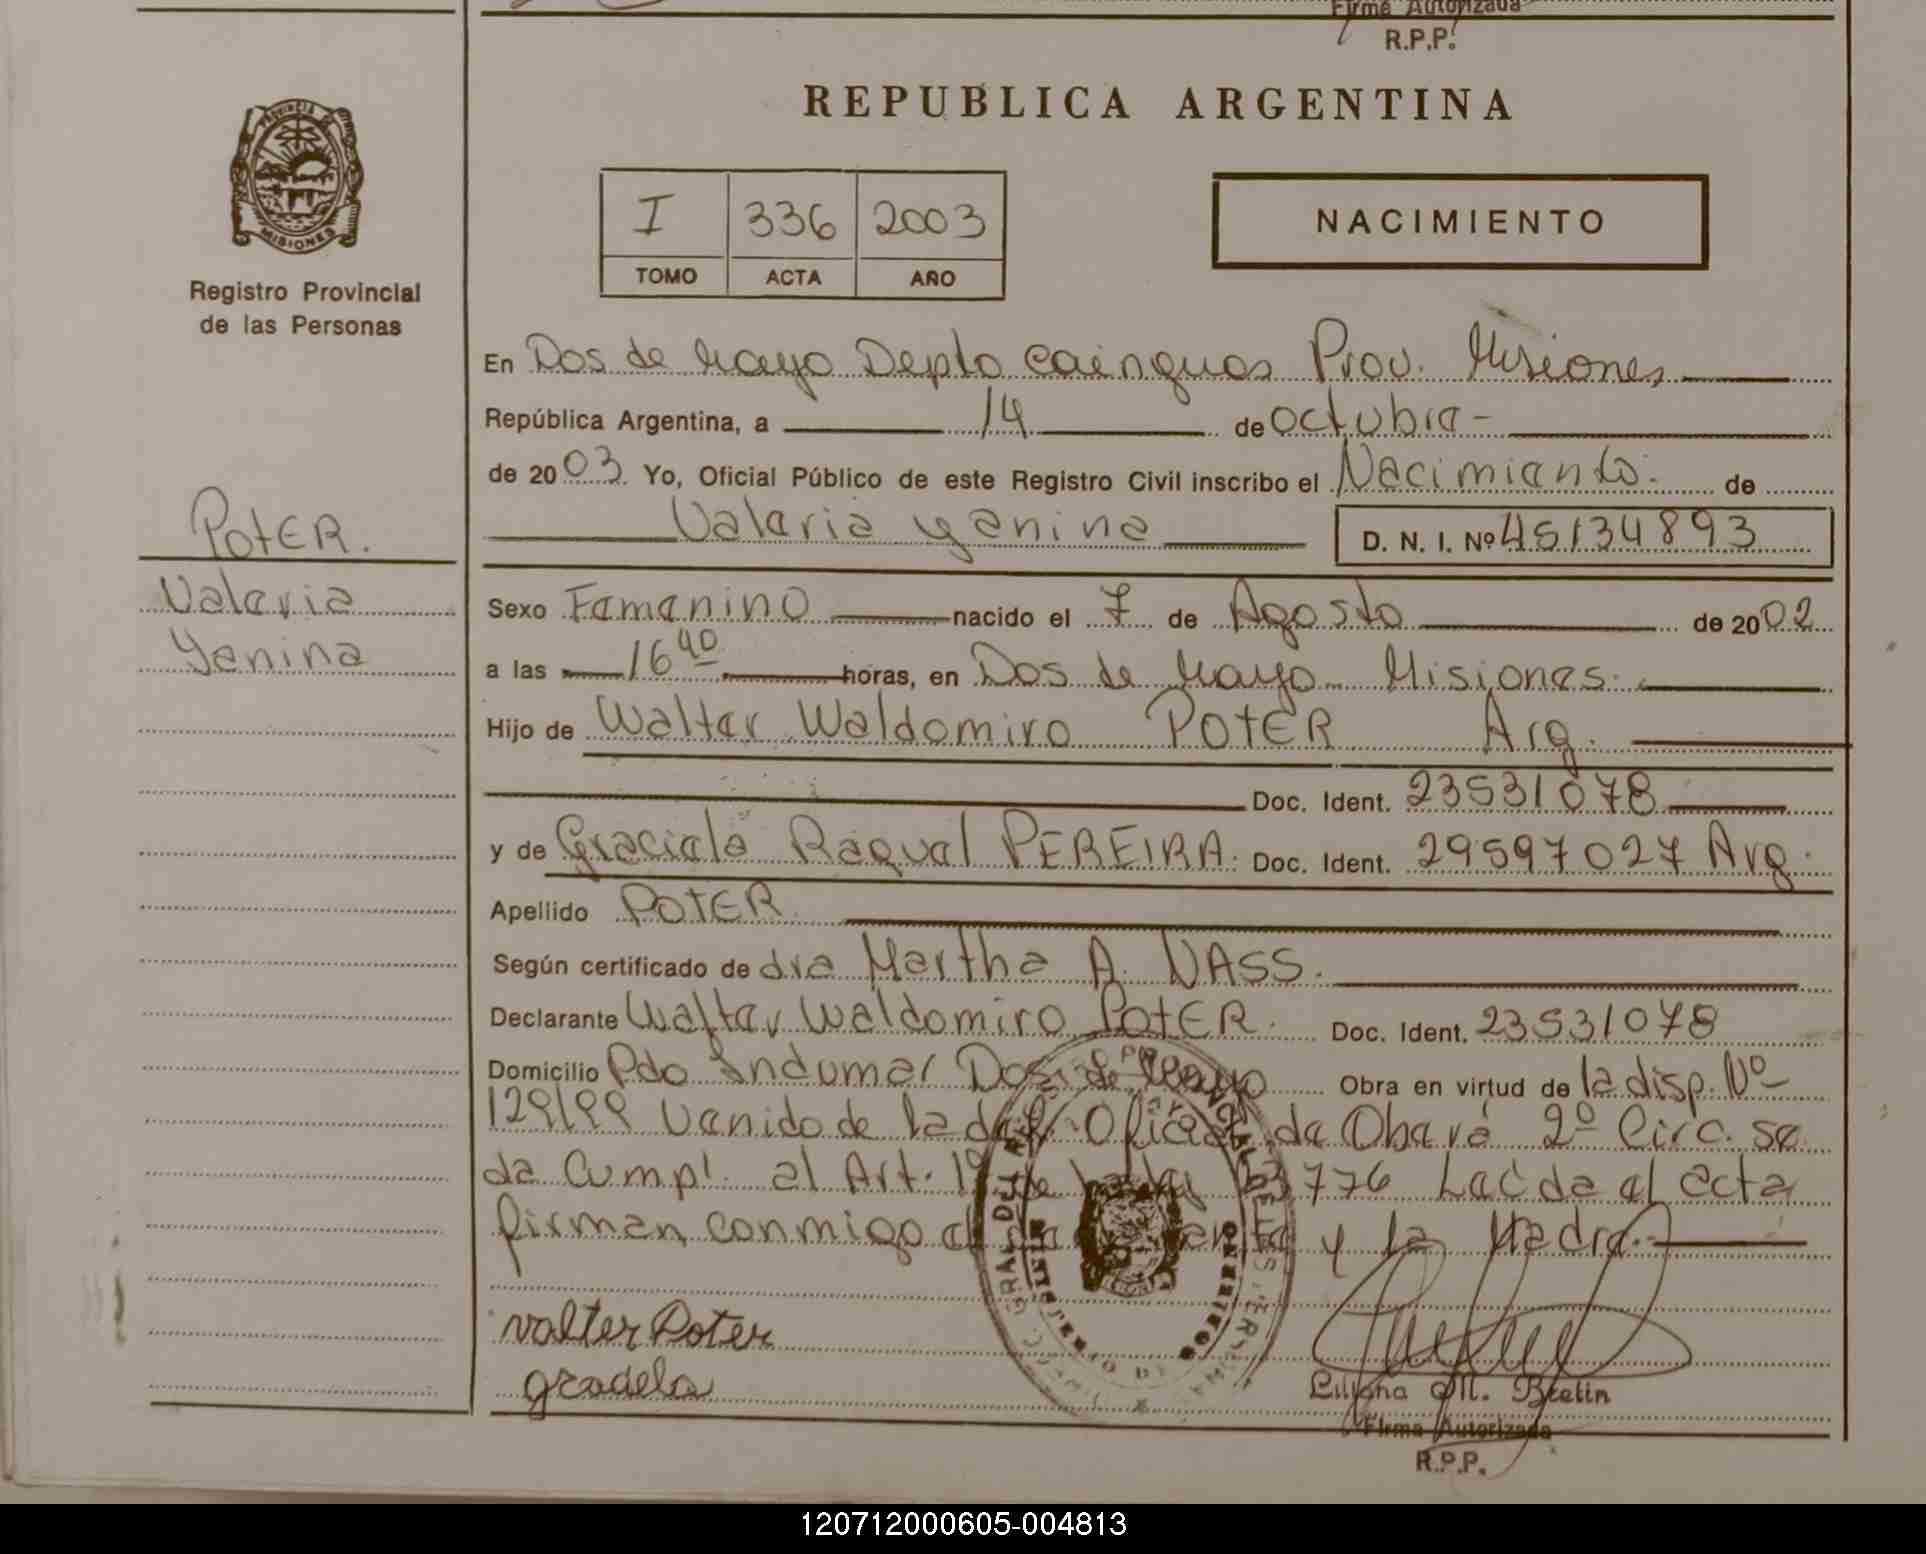 Firma Autorizada
R.P.P.
REPUBLICA ARGENTINA
PROVINCIA DE
MISIONES
Registro Provincial
de las Personas
I 336 2003
TOMO ACTA AÑO
NACIMIENTO
En Dos de Mayo Depto Cainguas Prov. Misiones
República Argentina, a 14 de octubre -
de 2003 Yo, Oficial Público de este Registro Civil inscribo el Nacimiento. de
Valeria Yanina D. N. I. Nº 45134893
POTER.
Valeria
Yanina
Sexo Femenino nacido el 7 de Agosto de 2002
a las 16 40 horas, en Dos de Mayo Misiones.
Hijo de Walter Waldomiro POTER Arg.
Doc. Ident. 23531078
y de Graciela Raquel PEREIRA. Doc. Ident. 29597027 Arg.
Apellido POTER
Según certificado de dra Martha A. NASS.
Declarante Walter Waldomiro POTER. Doc. Ident. 23531078
Domicilio Pdo Indumar Dos de Mayo Obra en virtud de la disp. Nº
129/99 Venido de la de Oficial de Oberá 2º Circ. se
da Cumpl. al Art. 1º de la Ley 23776 al acta
firman conmigo el y la Madre.
valter Poter
gradela
Liliana M. Bretin
Firma Autorizada
R.P.P.
120712000605-004813